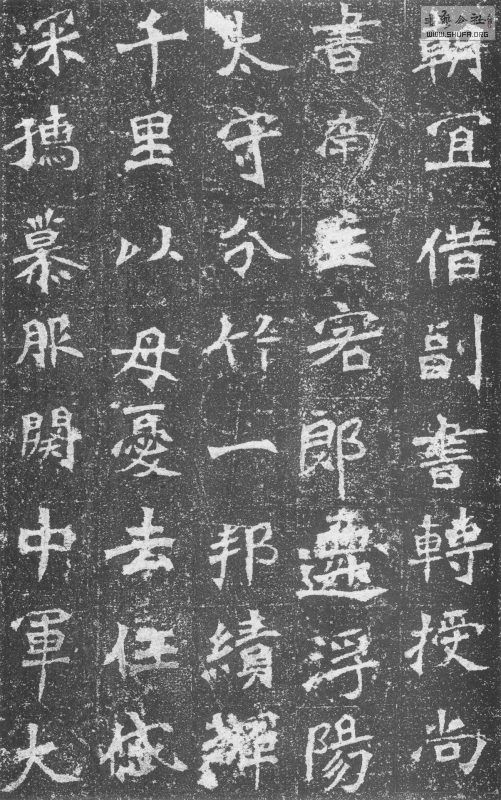 朝冝借副書轉授尚
書南主客郎遷浮陽
太守分竹一邦績輝
千里以母憂去任慼
深慕服闋中軍大
WWW.SHUFA.ORG